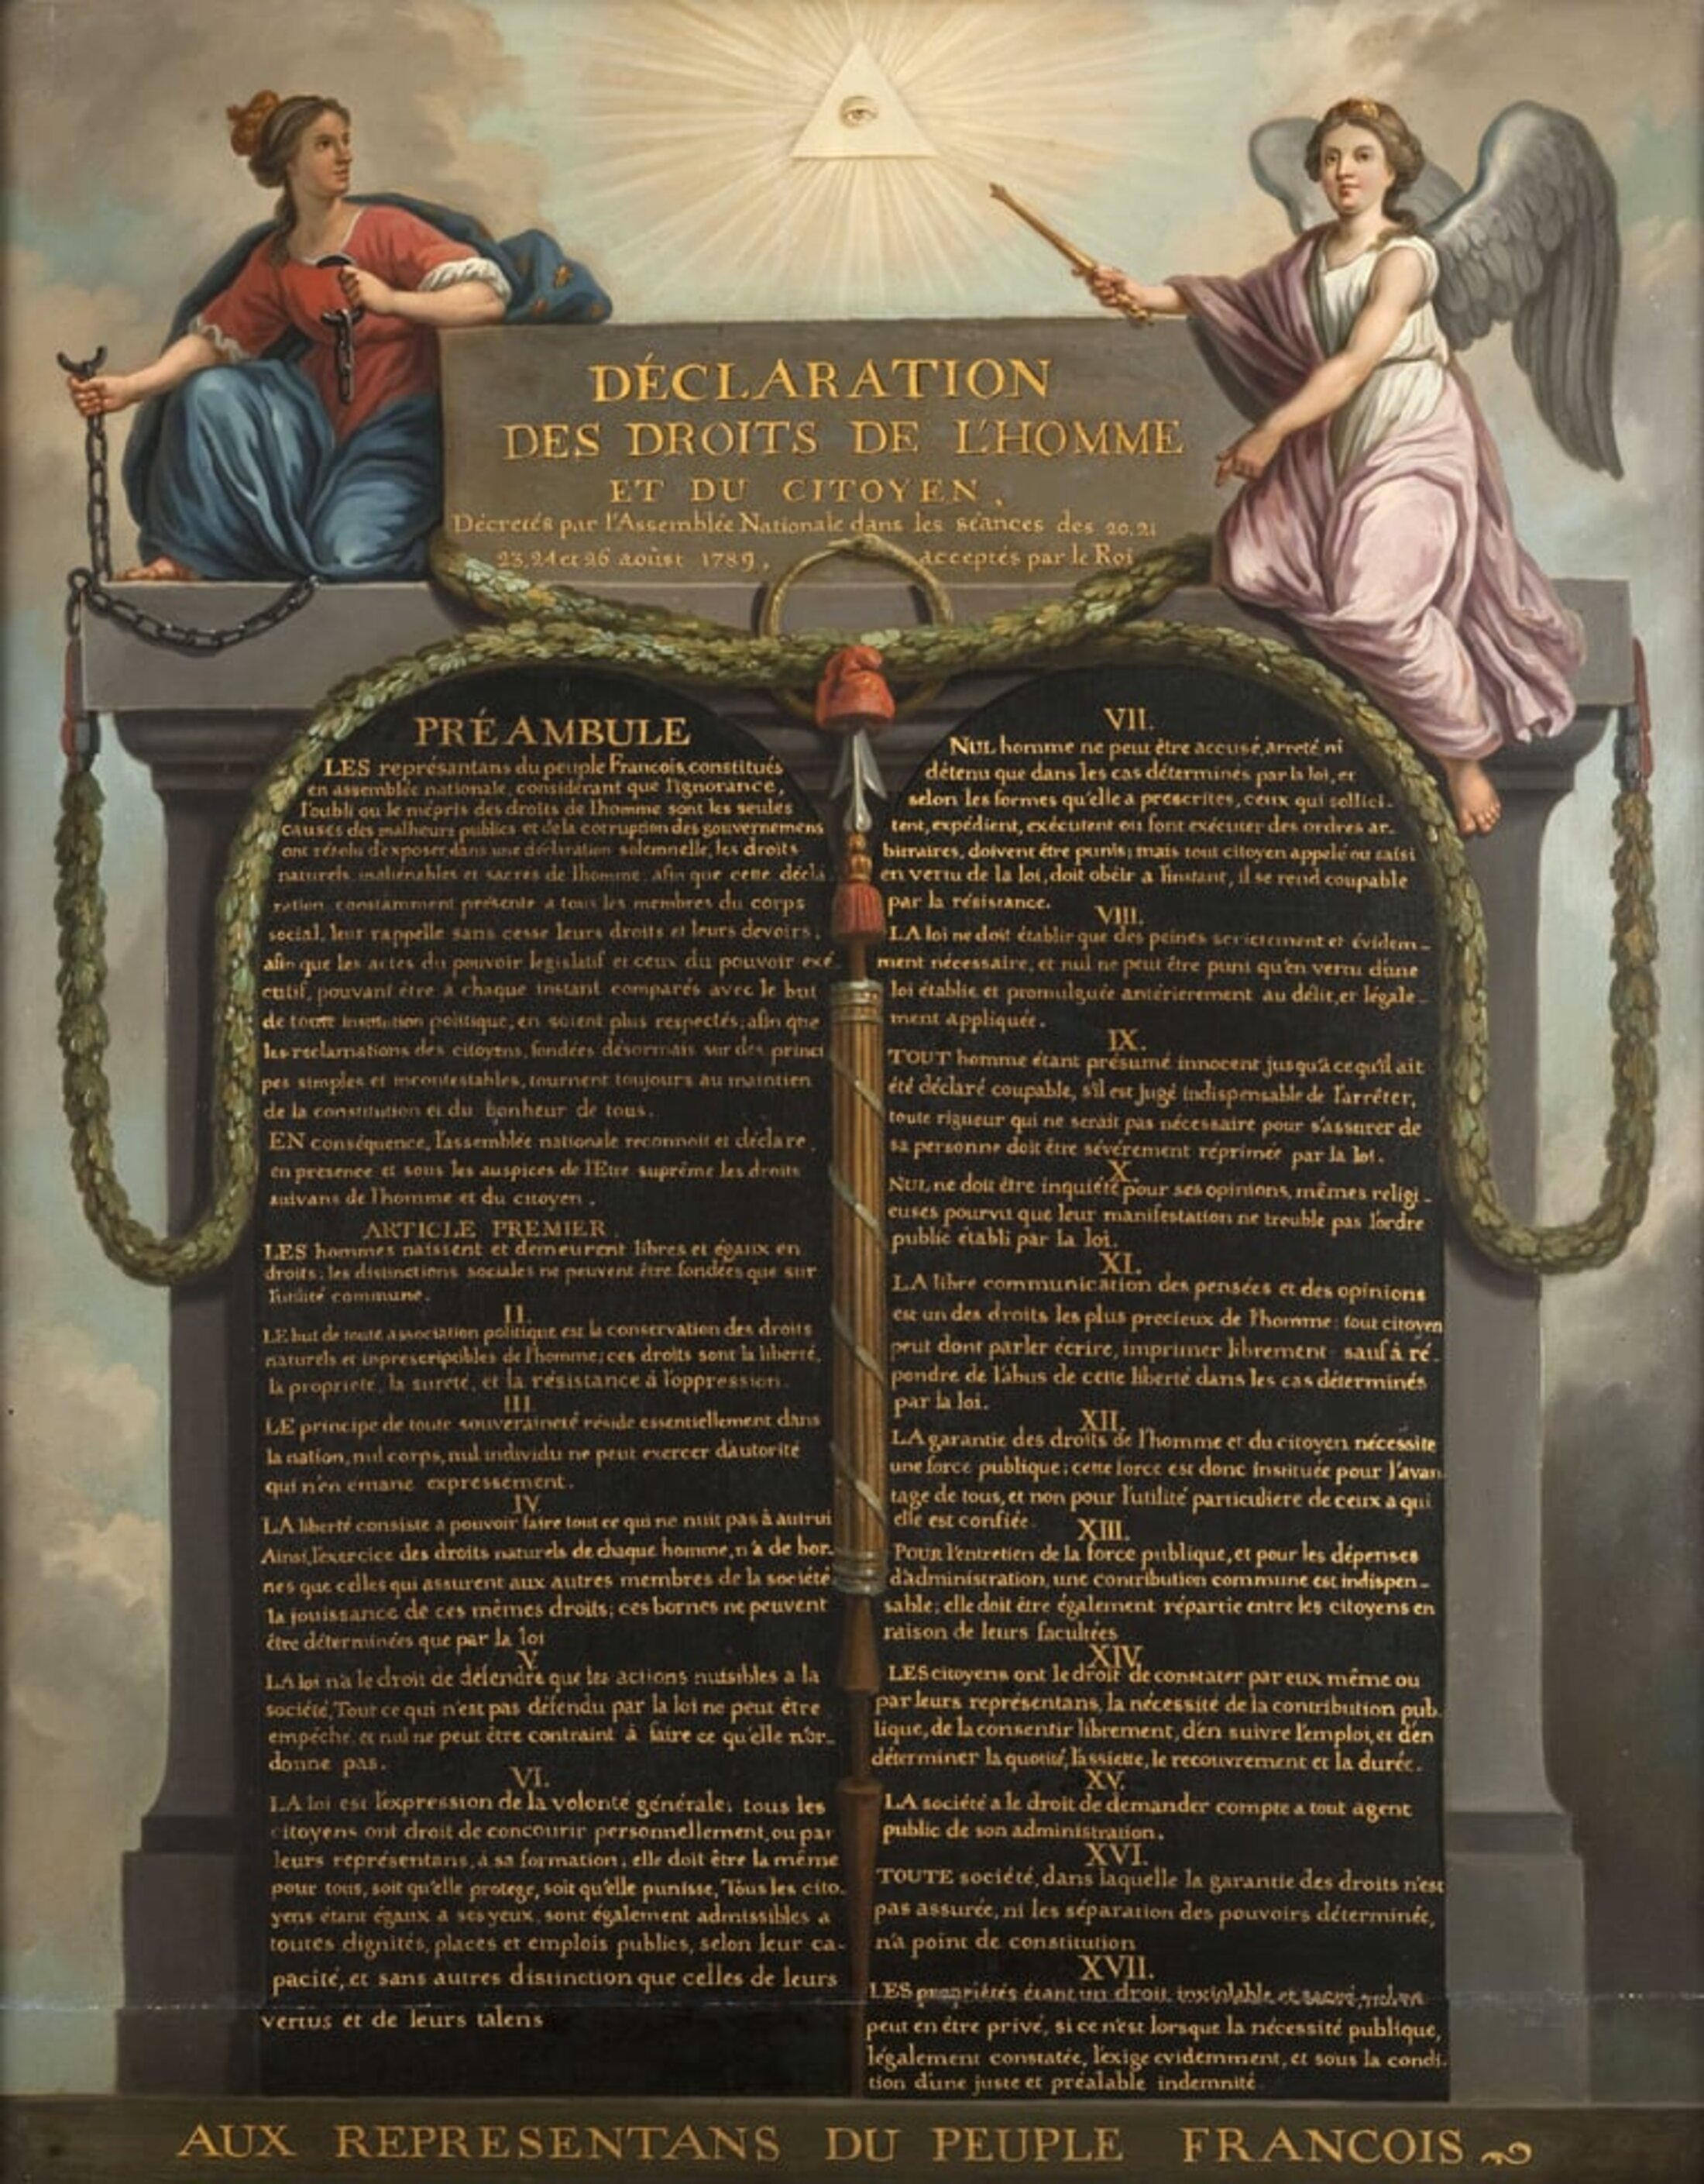 DÉCLARATION
DES DROITS DE L'HOMME
ET DU CITOYEN,
Décretés par l'Assemblée Nationale dans les séances des 20, 21
23, 24 et 26 aoùst 1789, acceptés par le Roi
PRÉAMBULE
LES représantans du peuple Francois, constitués
en assemblée nationale, considérant que l'ignorance,
l'oubli ou le mépris des droits de l'homme sont les seules
causes des malheurs publics et de la corruption des gouvernemens
ont résolu d'exposer dans une déclaration solemnelle, les droits
naturels, inaliénables et sacrés de l'homme, afin que cette décla
ration, constamment présente a tous les membres du corps
social, leur rappelle sans cesse leurs droits et leurs devoirs,
afin que les actes du pouvoir legislatif et ceux du pouvoir exé-
cutif, pouvant être à chaque instant comparés avec le but
de toute institution politique, en soient plus respectés; afin que
les reclamations des citoyens, fondées désormais sur des princi
pes simples et incontestables, tournent toujours au maintien
de la constitution et du bonheur de tous.
EN conséquence, l'assemblée nationale reconnoit et déclare,
en presence et sous les auspices de l'Etre suprême les droits
suivans de l'homme et du citoyen.
ARTICLE PREMIER.
LES hommes naissent et demeurent libres et égaux en
droits; les distinctions sociales ne peuvent être fondées que sur
l'utilité commune.
II.
LE but de toute association politique est la conservation des droits
naturels et inprescriptibles de l'homme; ces droits sont la liberté,
la propriété, la sureté, et la résistance à l'oppression.
III.
LE principe de toute souveraineté réside essentiellement dans
la nation, nul corps, nul individu ne peut exercer d'autorité
qui n'en émane expressément.
IV.
LA liberté consiste a pouvoir faire tout ce qui ne nuit pas à autrui
Ainsi, l'exercice des droits naturels de chaque homme, n'a de bor-
nes que celles qui assurent aux autres membres de la société
la jouissance de ces mêmes droits; ces bornes ne peuvent
être déterminées que par la loi
V.
LA loi n'a le droit de défendre que les actions nuisibles a la
société, Tout ce qui n'est pas défendu par la loi ne peut être
empêché, et nul ne peut être contraint à faire ce qu'elle n'or-
donne pas.
VI.
LA loi est l'expression de la volonté générale; tous les
citoyens ont droit de concourir personnellement, ou par
leurs représentans, à sa formation; elle doit être la même
pour tous, soit qu'elle protege, soit qu'elle punisse, Tous les cito-
yens étant égaux a ses yeux, sont également admissibles a
toutes dignités, places et emplois publics, selon leur ca-
pacité, et sans autres distinction que celles de leurs
vertus et de leurs talens
VII.
NUL homme ne peut être accusé, arreté ni
détenu que dans les cas déterminés par la loi, et
selon les formes qu'elle a prescrites, ceux qui sollici-
tent, expédient, exécutent ou font exécuter des ordres ar-
bitraires, doivent être punis; mais tout citoyen appelé ou saisi
en vertu de la loi, doit obéir a l'instant, il se rend coupable
par la résistance.
VIII.
LA loi ne doit établir que des peines strictement et évidem-
ment nécessaire, et nul ne peut être puni qu'en vertu d'une
loi établie et promulguée antérierement au délit, et légale-
ment appliquée.
IX.
TOUT homme étant présumé innocent jusqu'a ce qu'il ait
été déclaré coupable, s'il est jugé indispensable de l'arrêter,
toute rigueur qui ne serait pas nécessaire pour s'assurer de
sa personne doit être sévérement réprimée par la loi.
X.
NUL ne doit être inquiété pour ses opinions, mêmes religi-
euses pourvu que leur manifestation ne trouble pas l'ordre
public établi par la loi.
XI.
LA libre communication des pensées et des opinions
est un des droits les plus precieux de l'homme: tout citoyen
peut dont parler écrire, imprimer librement sauf à ré-
pondre de l'abus de cette liberté dans les cas déterminés
par la loi.
XII.
LA garantie des droits de l'homme et du citoyen nécessite
une force publique; cette force est donc instituée pour l'avan
tage de tous, et non pour l'utilité particuliere de ceux a qui
elle est confiée.
XIII.
POUR l'entretien de la force publique, et pour les dépenses
d'administration, une contribution commune est indispen-
sable; elle doit être également répartie entre les citoyens en
raison de leurs facultées
XIV.
LES citoyens ont le droit de constater par eux même ou
par leurs représentans, la nécessité de la contribution pub-
lique, de la consentir librement, d'en suivre l'emploi, et d'en
déterminer la quotité, l'assiette, le recouvrement et la durée.
XV.
LA société a le droit de demander compte a tout agent
public de son administration.
XVI.
TOUTE société, dans laquelle la garantie des droits n'est
pas assurée, ni les séparation des pouvoirs déterminée,
n'a point de constitution
XVII.
LES propriétés étant un droit inviolable et sacré, nul ne
peut en être privé, si ce n'est lorsque la nécessité publique,
légalement constatée, l'exige evidemment, et sous la condi-
tion d'une juste et préalable indemnité
AUX REPRESENTANS DU PEUPLE FRANCOIS